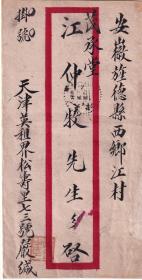 安徽旌德縣西鄉江村
茂承堂
江仲牧先生啓
天津英租界松壽里七三號嚴緘
掛號